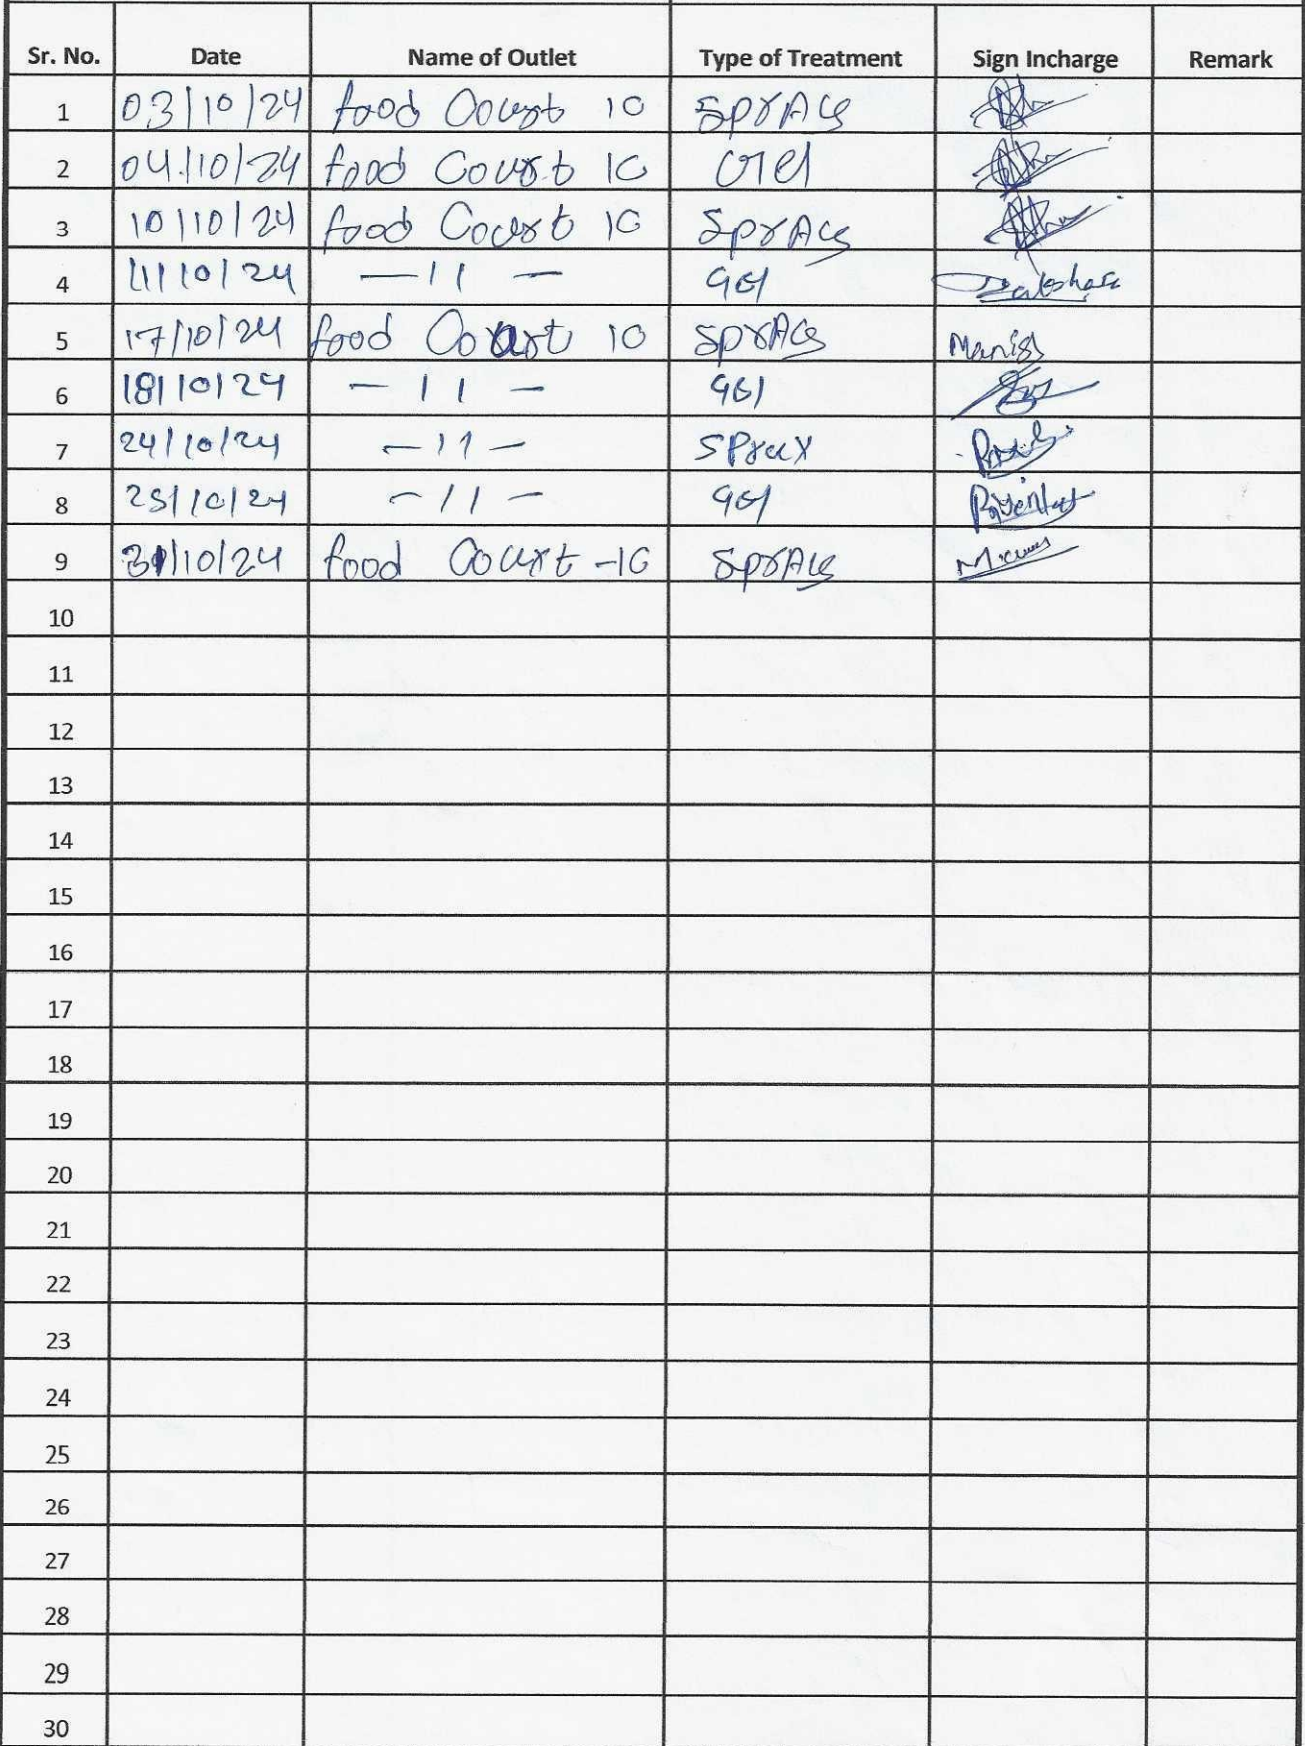 Sr. No. Date Name of Outlet Type of Treatment Sign Incharge Remark
1 03/10/24 food Court 10 Spray
2 04/10/24 food Court 10 Gel
3 10/10/24 food Court 10 Spray
4 11/10/24 —11— Gel
5 17/10/24 food Court 10 Spray Manish
6 18/10/24 —11— Gel
7 24/10/24 —11— Spray
8 25/10/24 —11— Gel
9 31/10/24 food Court -10 Spray
10
11
12
13
14
15
16
17
18
19
20
21
22
23
24
25
26
27
28
29
30